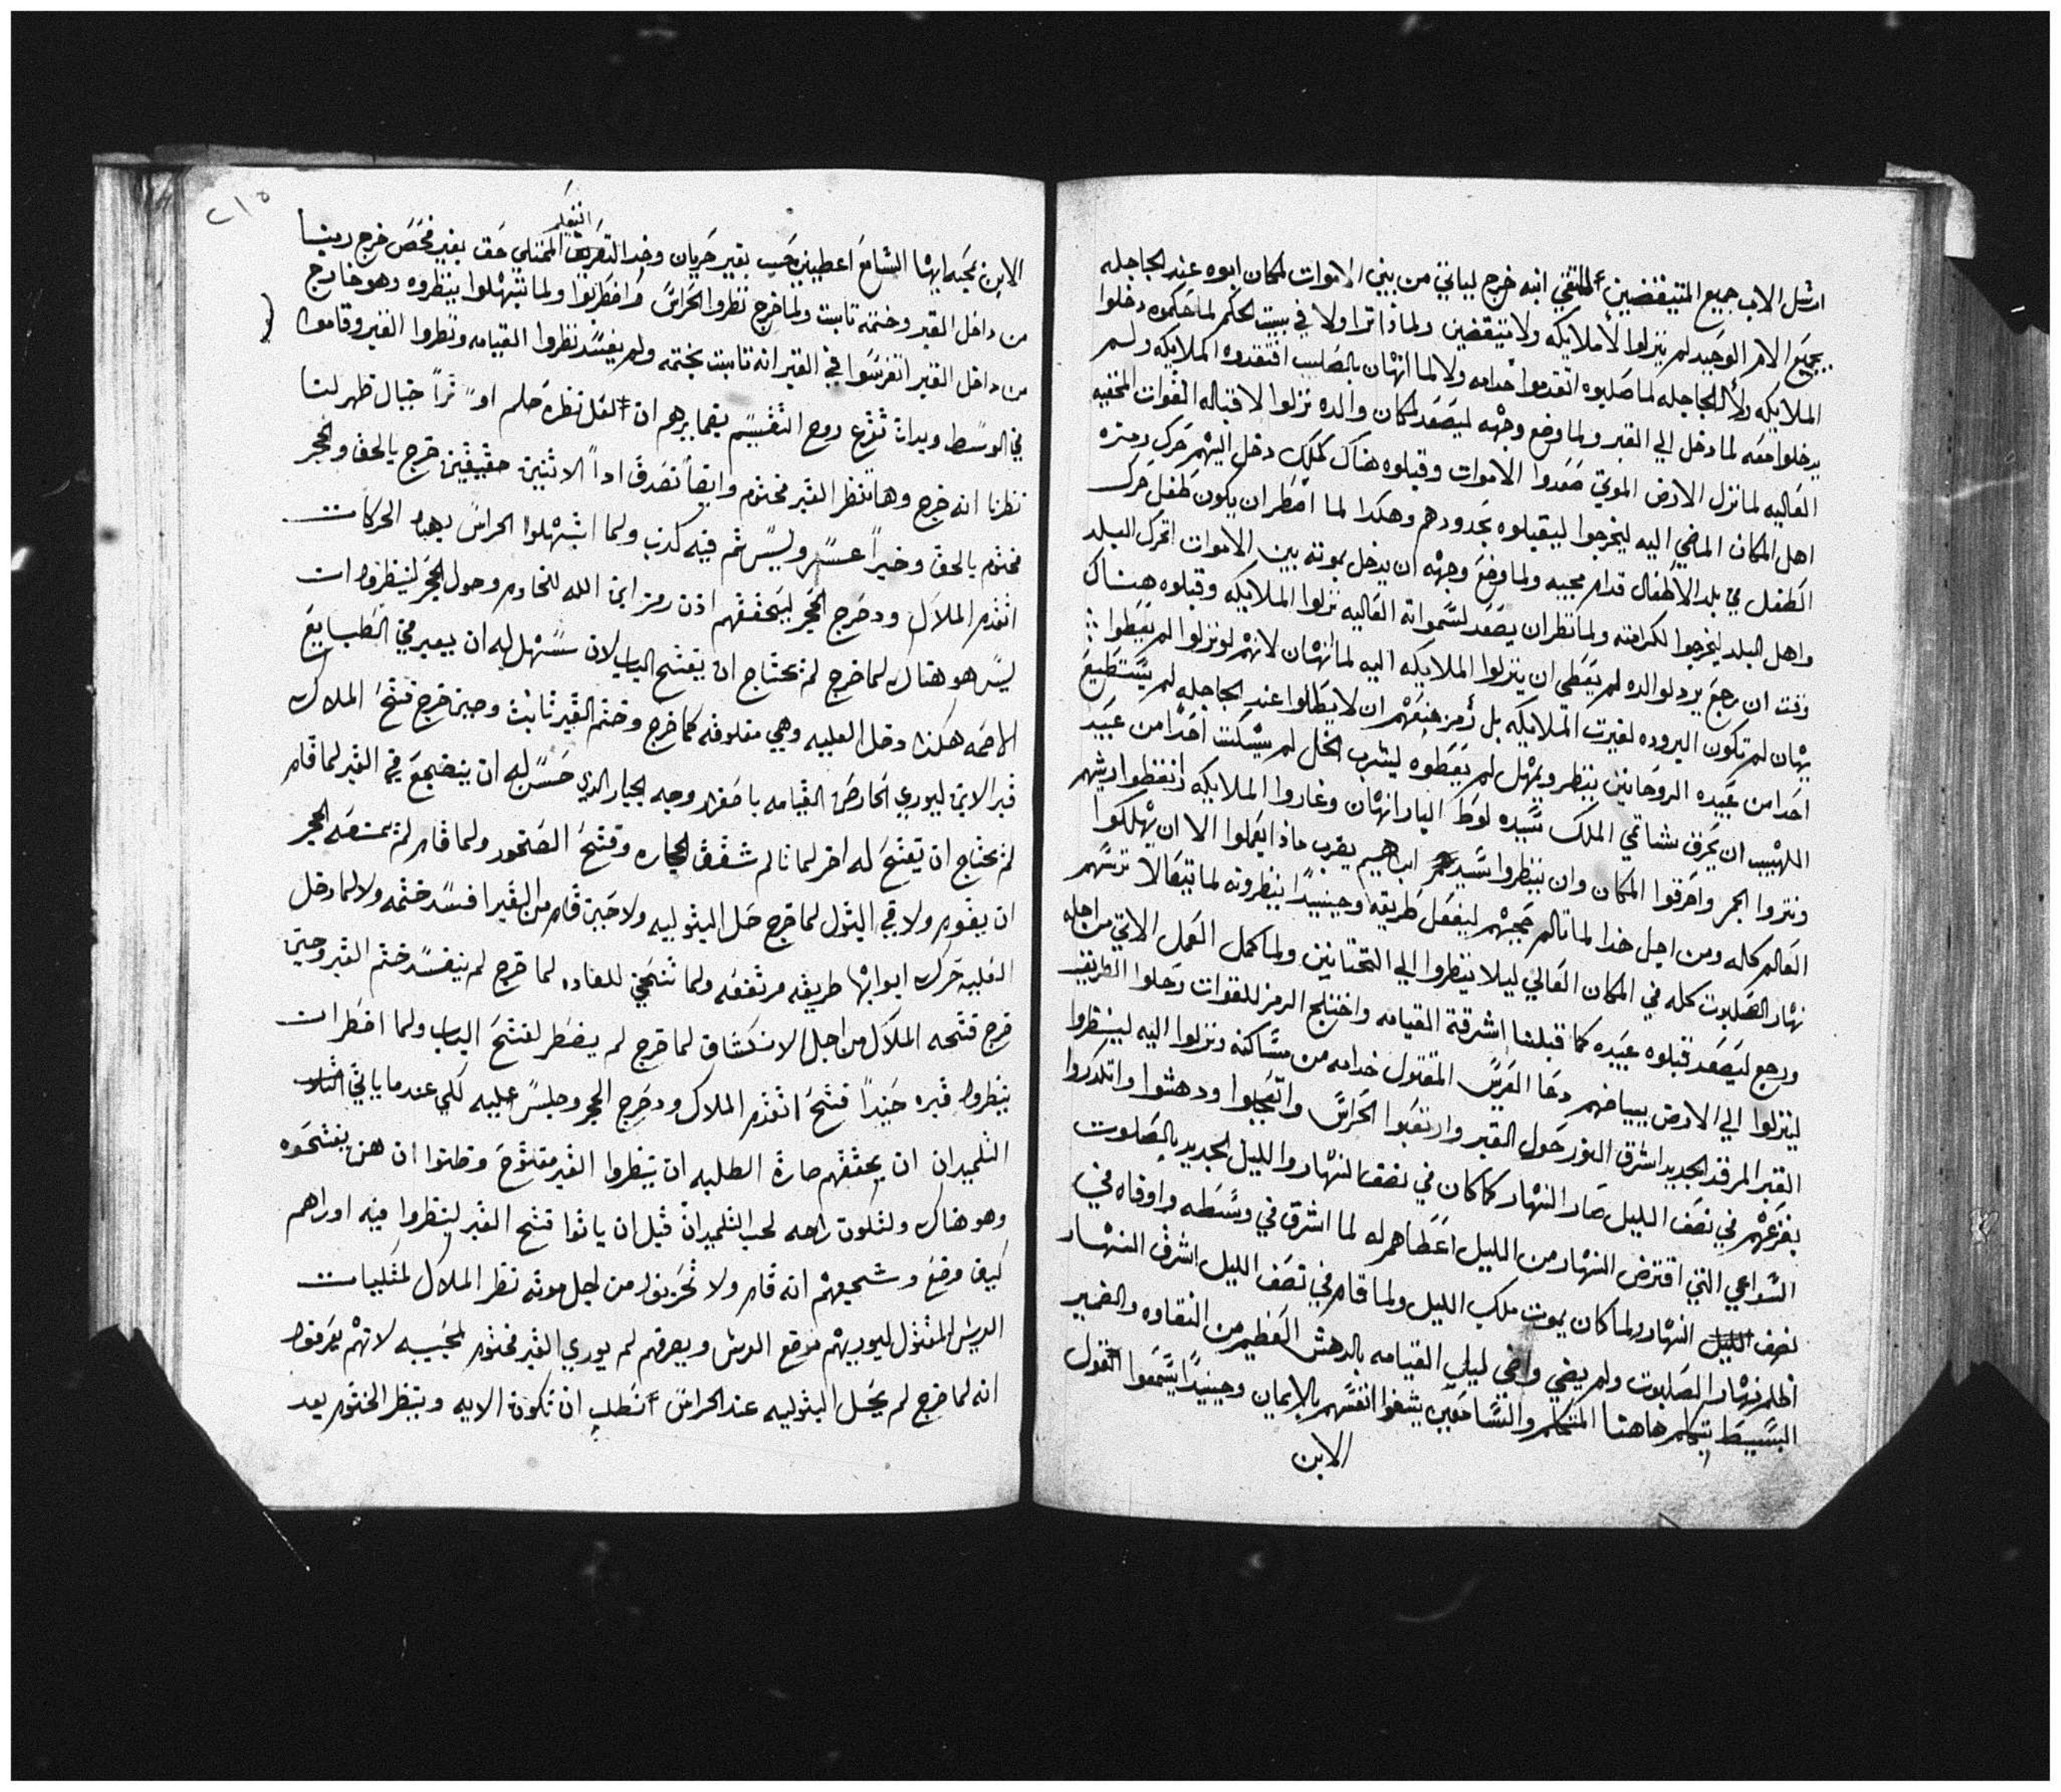 ارسل الاب جميع المتيقضين المتقي انه خرج لياتي من بيني الاموات لمكان ابوه عند الجاجله
بجميع الامر الوحيد لم ينزلوا الاملايكه ولا متيقضين ولماذا اترا ولا في بييت الحكم لما حكموه دخلوا
الملايكه ولا للجاجله لما صلبوه اتقدموا خدامه ولا لما اتهان بالصليب افتقدوه الملايكه ولم
يدخلوا معه لما دخل الي القبر ولما وضع وجهه ليصعد لمكان والده نزلوا لاقتباله القوات المخفيه
العاليه لما نزل الارض الموتي صعدوا الاموات وقبلوه هناك كملك دخل اليهم حرك رمزه
اهل المكان الماضي اليه ليخرجوا ليقبلوه بحدودهم وهكدا لما اضطر ان يكون طفل حرك
الطفل في بلد الاطفال قدام مجيبه ولما وضع وجهه ان يدخل بموته بين الاموات اتحرك البلد
واهل البلد ليخرجوا لكرامته ولما نظر ان يصعد لسمواته العاليه نزلوا الملايكه وقبلوه هناك
وقت ان رجع يرد لوالده لم يعطي ان ينزلوا الملايكه اليه لما اتهان لانهم لو نزلوا لم يعطوا
يهان لم تكون البروده لغيرت الملايكه بل رمز منعهم ان لا يطلوا عند الجاجله لم يستطيع
احدا من عبيده الروحانين ينظر ويمهل لم يعطوه ليشرب الخل لم يسكت احدا من عبيد
اللهيب ان يحرق شاتمي الملك سيده لوط البار اتهان وغاروا الملايكه انغظوا ريشهم
ونتروا الجمر واحرقوا المكان وان ينظروا سيد ابراهيم يضرب ماذا يعملوا الا ان يهلكوا
العالم كله ومن اجل خدا لما تالم حجبهم ليفعل طريقه وحينيدا ينظرونه لما يتعالا ترسهم
نهار الصلبوت كله في المكان العالي ليلا ينظروا الي التحتانين ولما كمل العمل الاتي من اجله
ورجع ليصعد قبلوه عبيده كما قبلنا اشرقة القيامه واختلج الرمز للقوات رحلوا الطريق
لينزلوا الي الارض ببياضهم دعا العريس المقتول خدامه من مساكنه ونزلوا اليه لينظروا
القبر المرقد الجديد اشرق النور حول القبر وارتعبوا الحراس واتعجبوا ودهشوا واتكدروا
بفزعهم في نصف الليل صار النهار كما كان في نصف النهار والليل الجديد بالصلوت
السواعي التي اقترض النهار من الليل اعطاهم له لما اشرق في وسطه واوفاه في
نصف الليل النهار ولما كان يموت ملك الليل ولما قام في نصف الليل اشرق النهار
اظلم نهار الصلبوت ولم يضي واضى ليل القيامه بالدهش العظيم من النقاوه والضمير
البسيط يتكلم هاهنا المتكلم والسامعين يشفوا انفسهم بالايمان وحينيدا يسمعوا القول
الابن
٢١٥
الابن بمحبه ايها السامع اعطيني حبيب بقير حريان وخد التعريف التعلم الممتلي حق بغير فحص خرج ربنا
من داخل القبر وختمه تابت ولما خرج نظروا الحراس واضطربوا ولما تبهلوا ينظروه وهو خارج
من داخل القبر اتفرسوا في القبر انه تابت بختمه ولم يفسد نظروا القيامه ونظروا القبر وقاموا
في الوسط وبدات تفزع روح التقسيم بضمايرهم ان لعل نظره حلم او ترا خيال ظهر لنا
نظرنا انه خرج وها ننظر القبر مختوم وايضا تصدق ادا الاثنين حقيقين خرج بالحق والحجر
مختوم بالحق وخبرا عسر وليس ثم فيه كدب ولما اتبهلوا الحراس بهذه الحركات
اتقدم الملاك ودحرج الحجر ليحققهم اذن رمز ابن الله لخادمه وحول الحجر لينظروا ان
ليس هو هناك لما خرج لم يحتاج ان يفتح الباب لان سهل له ان يعبر في الطبايع
الامحه هكذا دخل العليه وهي مغلوقه كما خرج وختم القبر تابت وحين خرج فتح الملاك
قبر الابن ليوري الحارض القيامه باصفرار وجه الجبار الذي حسن له ان يضجع في القبر لما قام
لم يحتاج ان يفتح له اخر لما تالم شقق الحجاره وفتح الصخور ولما قام لم يمنعه الحجر
ان يقوم ولا في البتول لما خرج حل البتوليه ولا حين قام من القبر افسد ختمه ولا لما دخل
العليه حرك ابوابها طريقه مرتفعه ولما تنحي للعاده لما خرج لم يفسد ختم القبر وحين
خرج فتحه الملاك من اجل الانكشاف لما خرج لم يضطر لفتح الباب ولما اضطر ان
ينظروا قبره جيدا فتح اتقدم الملاك ودحرج الحجر وجلس عليه لكي عندما ياتي
التلميدان ان يحققهم صارة الطلبه ان ينظروا القبر مفتوح وظنوا ان هن يفتحوه
وهو هناك ولتكون راحه لحب التلميدان قبل ان ياتوا فتح القبر لينظروا فيه اوراهم
كيف وضع وشجعهم انه قام ولا تحزنوا من اجل موته نظر الملاك لمحبات
العريس المقتول ليوريهم موضع العرش ويعرفهم لم يوري القبر مختوم لمحبيه لانهم يعرفوا
انه لما خرج لم يحل البتوليه عند الحراس اتطلب ان تكون الايه وينظر الختوم بعد